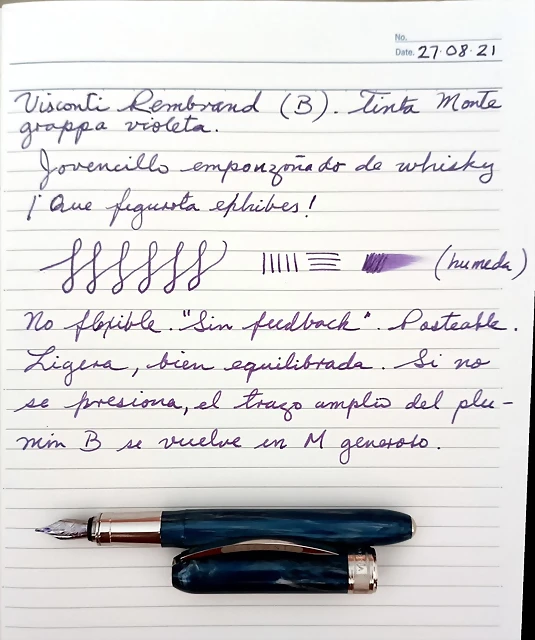 No.
Date. 27·08·21
Visconti Rembrand (B). Tinta Monte
grappa violeta.
Jovencillo emponzoñado de whisky
¡Que figurota exhibes!
(humeda)
No flexible. "Sin feedback". Posteable.
Ligera, bien equilibrada. Si no
se presiona, el trazo amplio del plu-
min B se vuelve en M generoso.